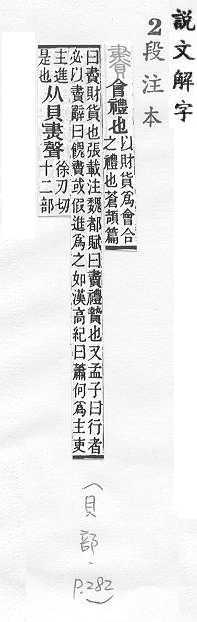 說文解字
2段注本
賮 會禮也
以財貨爲會合
之禮也蒼頡篇
曰賮財貨也張載注魏都賦曰賮禮贄也又孟子曰行者
必以賮辭曰餽賮或假進爲之如漢高紀曰蕭何爲主吏
主進
是也
从貝㶳聲
徐刃切
十二部
(貝部.P.282)